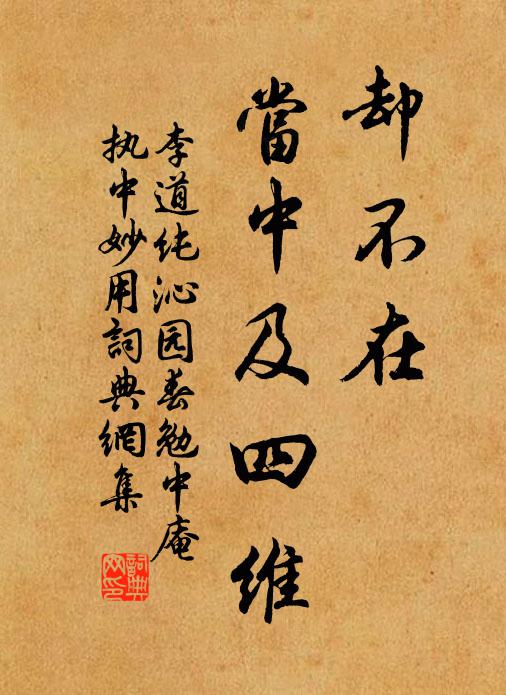 却不在
當中及四维
李道纯沁园春勉中庵
执中妙用詞典網集
詞典网印